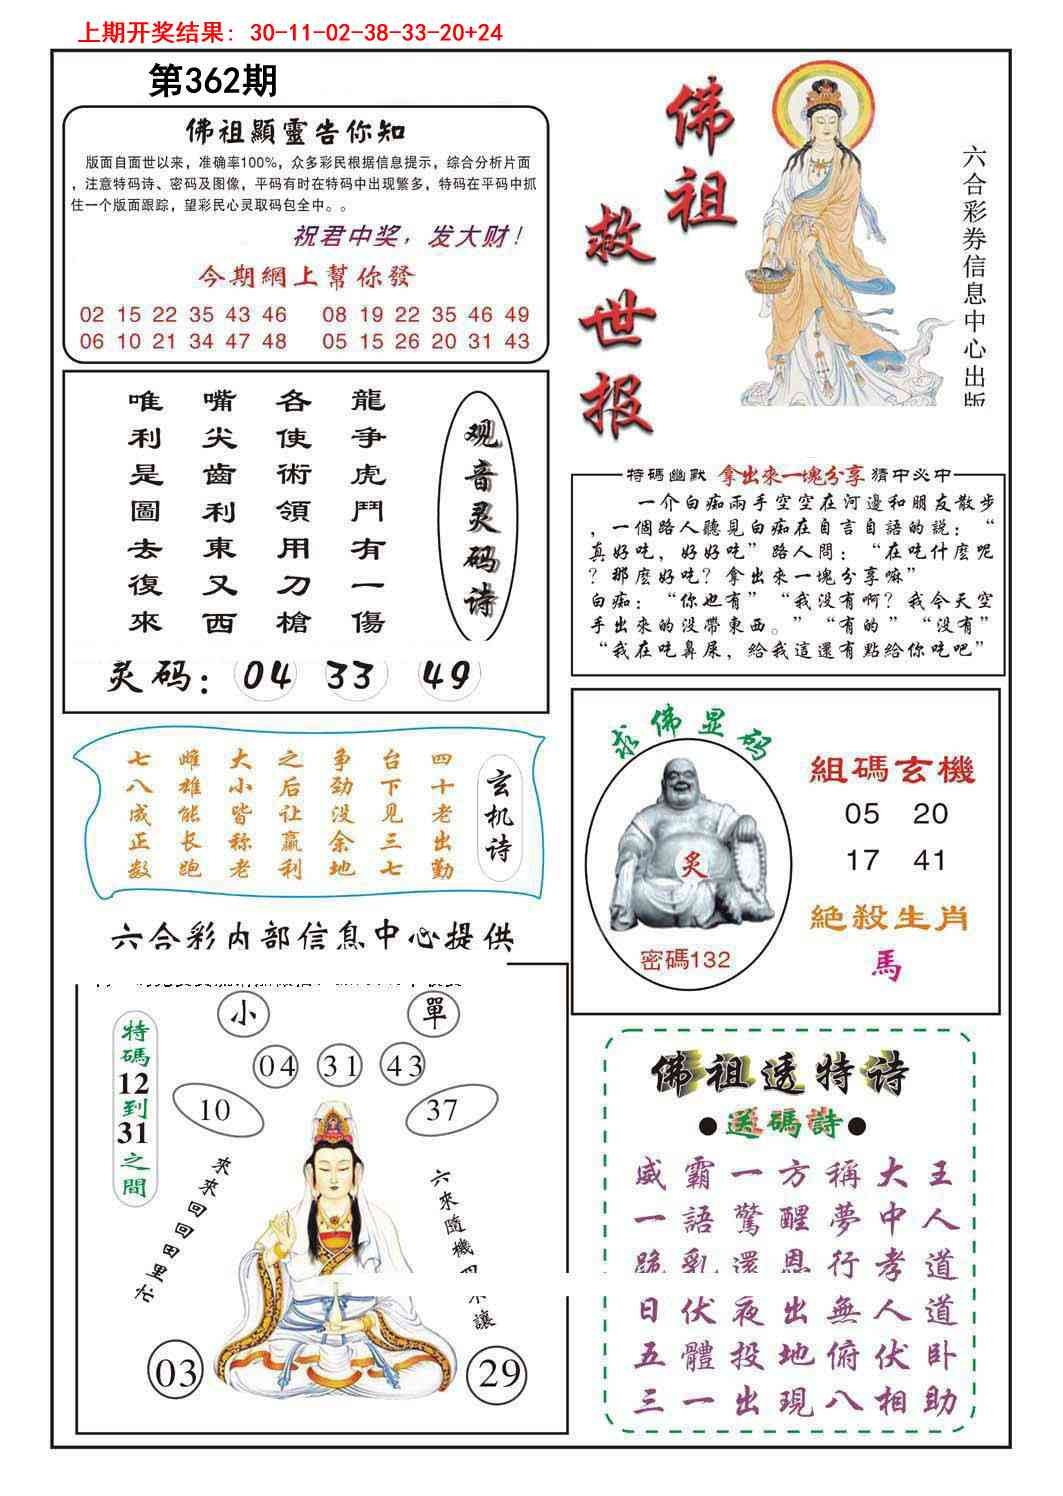 上期开奖结果: 30-11-02-38-33-20+24
第362期
佛祖顯靈告你知
版面自面世以来，准确率100%，众多彩民根据信息提示，综合分析片面
，注意特码诗、密码及图像，平码有时在特码中出现繁多，特码在平码中抓
住一个版面跟踪，望彩民心灵取码包全中。。
祝君中奖，发大财!
今期網上幫你發
02 15 22 35 43 46 08 19 22 35 46 49
06 10 21 34 47 48 05 15 26 20 31 43
佛祖
救世报
六合彩券信息中心出版
观音灵码诗
龍争虎鬥有一傷
各使術領用刀槍
嘴尖齒利東又西
唯利是圖去復來
灵码: 04 33 49
特碼幽默 拿出來一塊分享 猜中必中
一个白痴兩手空空在河邊和朋友散步
，一個路人聽見白痴在自言自語的説：“
真好吃，好好吃”路人問：“在吃什麼呢
？那麼好吃？拿出來一塊分享嘛”
白痴：“你也有”“我没有啊？我今天空
手出來的没帶東西。”“有的”“没有”
“我在吃鼻屎，給我這還有點給你吃吧”
玄机诗
四十老出勤
台下见三七
争劲没余地
之后让赢利
大小皆称老
雌雄能长跑
七八成正数
求佛显码
炙
密碼132
組碼玄機
05 20
17 41
絕殺生肖
馬
六合彩内部信息中心提供
小 單
04 31 43
10 37
特碼12到31之間
來來回回田里忙
六來隨機
讓
03 29
佛祖透特诗
●送碼詩●
威霸一方稱大王
一語驚醒夢中人
跪乳還恩行孝道
日伏夜出無人道
五體投地俯伏卧
三一出現八相助